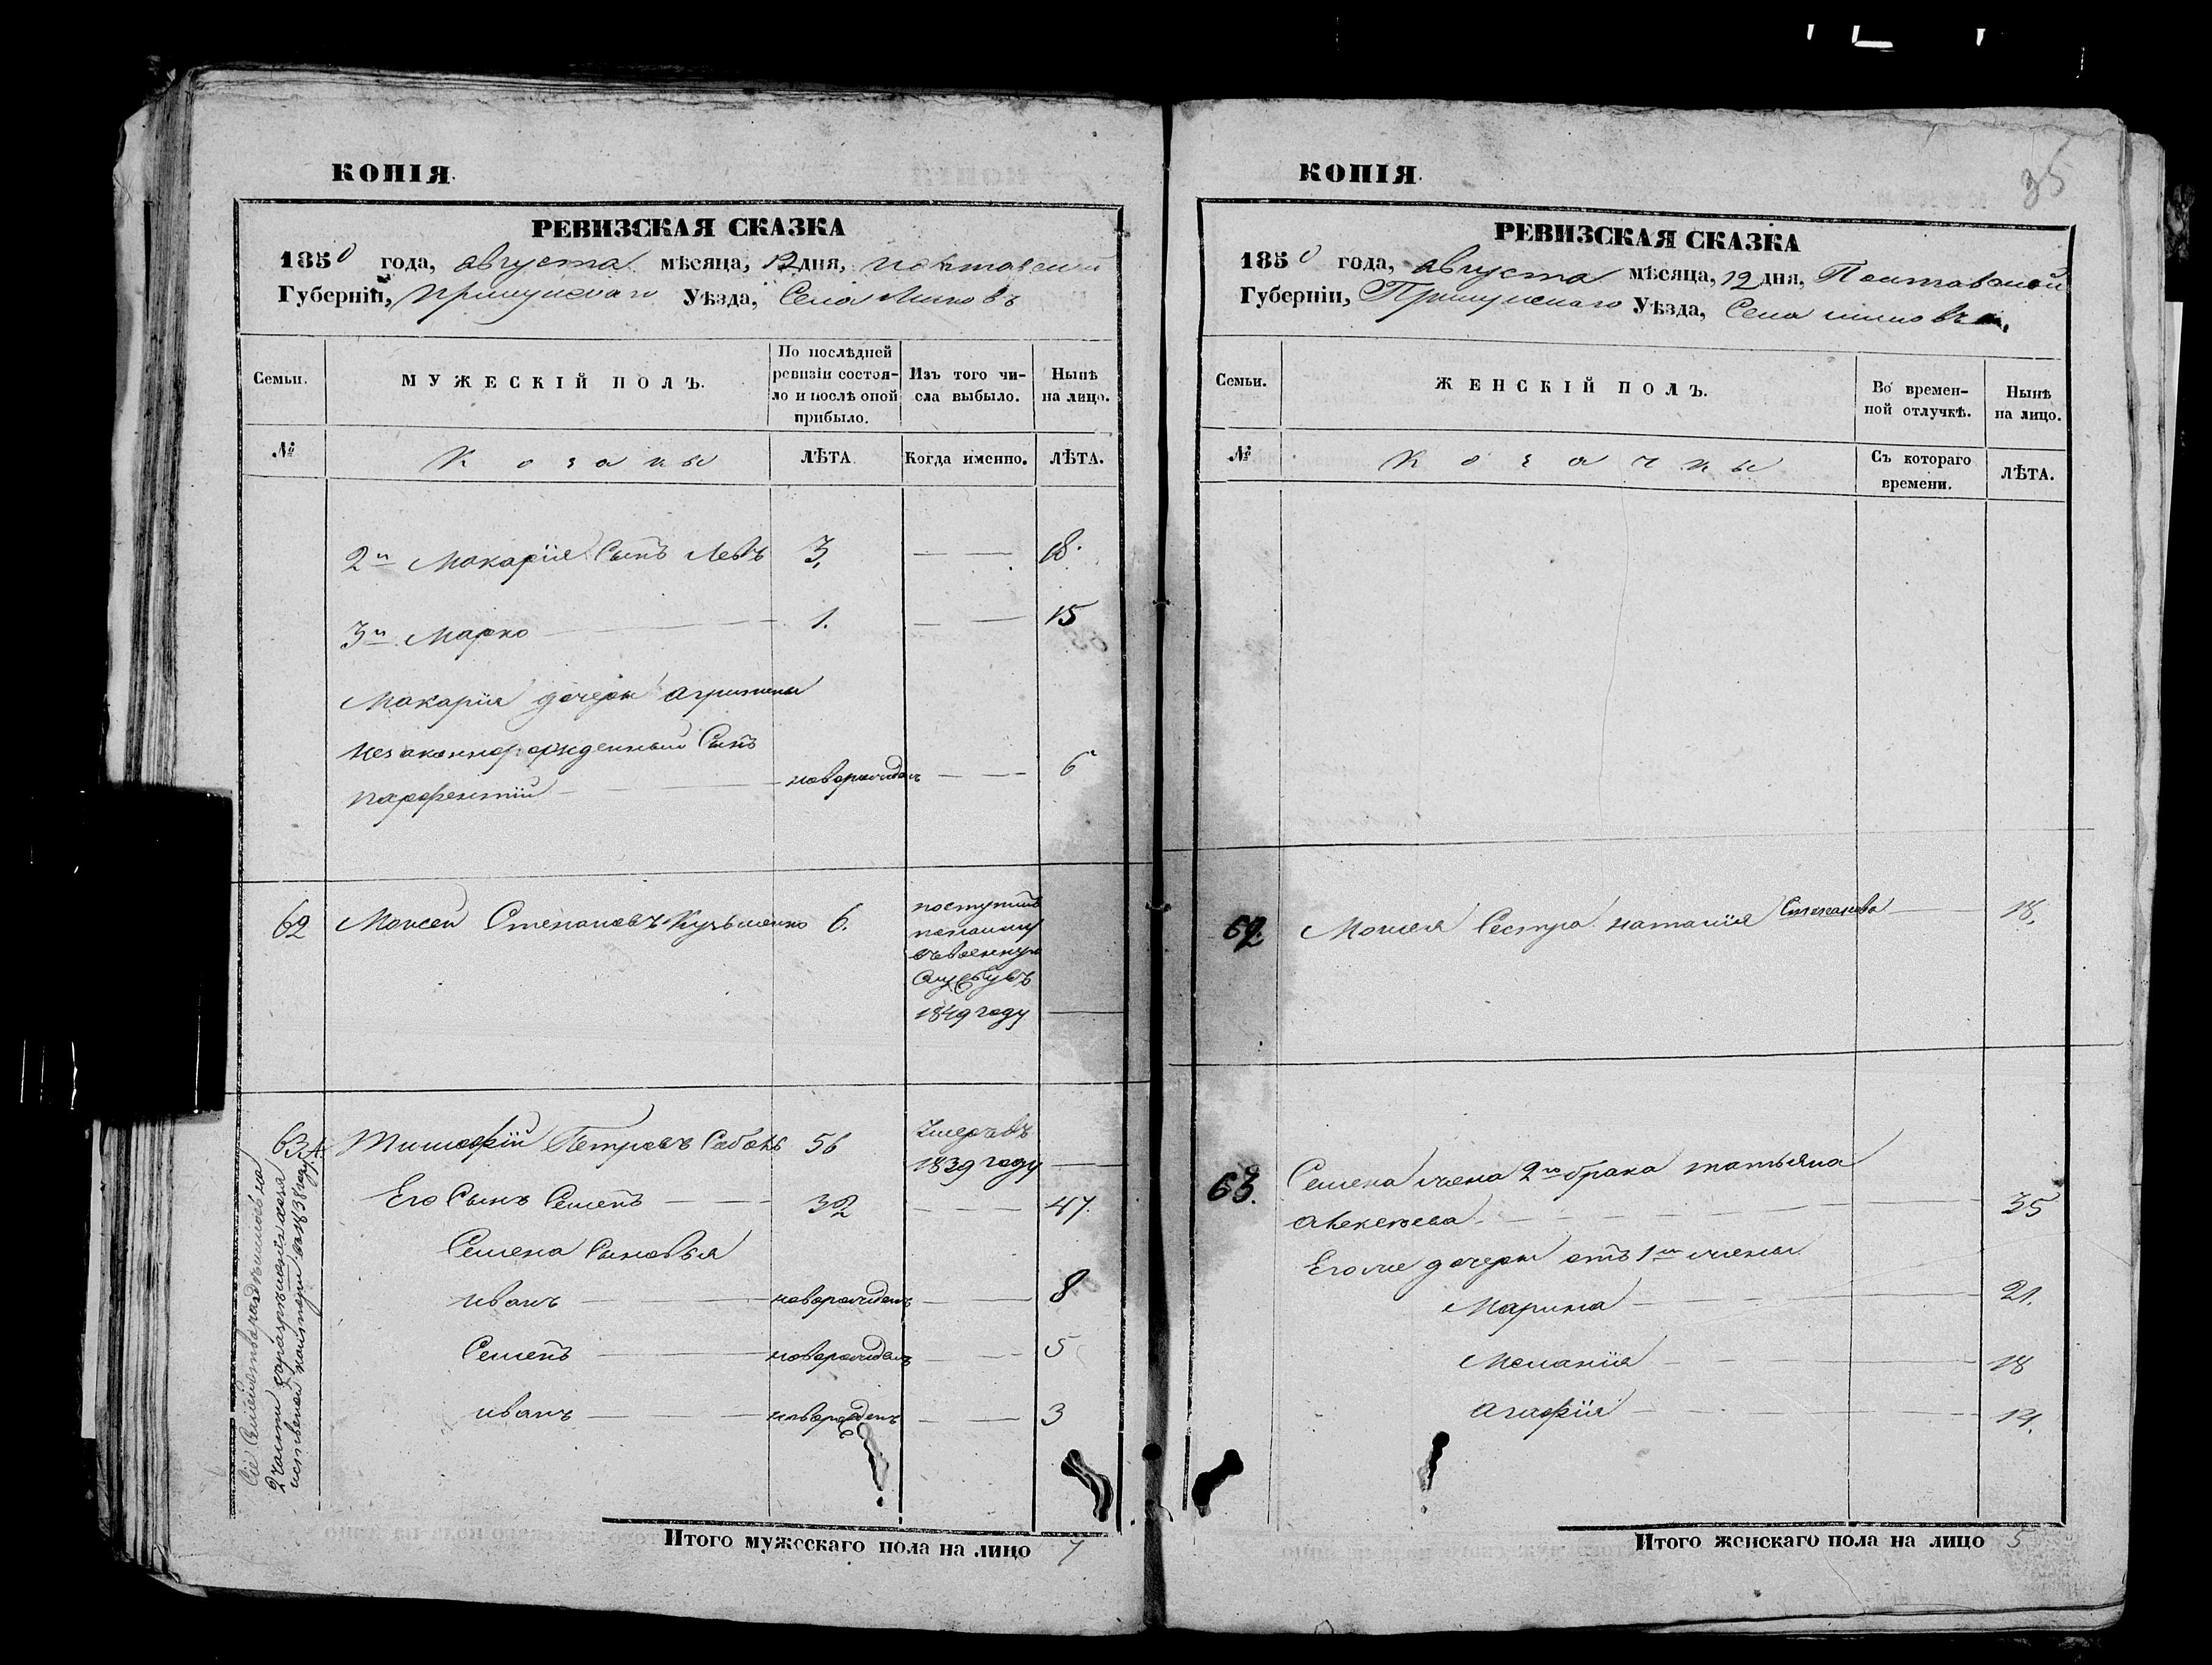 КОПІЯ.
РЕВИЗСКАЯ СКАЗКА
1850 года, августа мѣсяца, 12 дня, Полтавской
Губерніи, Прилуцкаго Уѣзда, Села
Семьи.
МУЖЕСКІЙ ПОЛЪ.
По послѣдней ревизіи состоя-
ло и послѣ оной прибыло.
Изъ того чи-
сла выбыло.
Нынѣ
на лицо.
№
Козаки
ЛѢТА
Когда именно.
ЛѢТА.
2й Макарія Сынъ Левъ 3, 18.
3й Марко 1. 15
Макарія дочери Агрипины
незаконнорожденный Сынъ
Парфентій новорожденъ 6
62 Моисей Степановъ Кузьменко 6.
поступилъ
въ военную
Службу въ
1849 году
63 Тимофій Петровъ 56
Умеръ въ
1839 году
Его Сынъ Семенъ 32 47.
Семена Сыновья
иванъ новорожденъ 8
Семенъ новорожденъ 5
иванъ новорожденъ 3
Сіе Семейство
2 части
1838 году
Итого мужескаго пола на лицо 7
35
КОПІЯ.
РЕВИЗСКАЯ СКАЗКА
1850 года, августа мѣсяца, 12 дня, Полтавской
Губерніи, Прилуцкаго Уѣзда, Села
Семьи.
ЖЕНСКІЙ ПОЛЪ.
Во времен-
ной отлучкѣ.
Нынѣ
на лицо.
№
Козачки
Съ котораго
времени.
ЛѢТА.
62. Моисея Сестра наталія Степанова 18.
63. Семена жена 2го брака татьяна
Алексѣева 35
Его же дочери отъ 1й жены
Марина 21.
Меланія 18
Агафія 14.
Итого женскаго пола на лицо 5